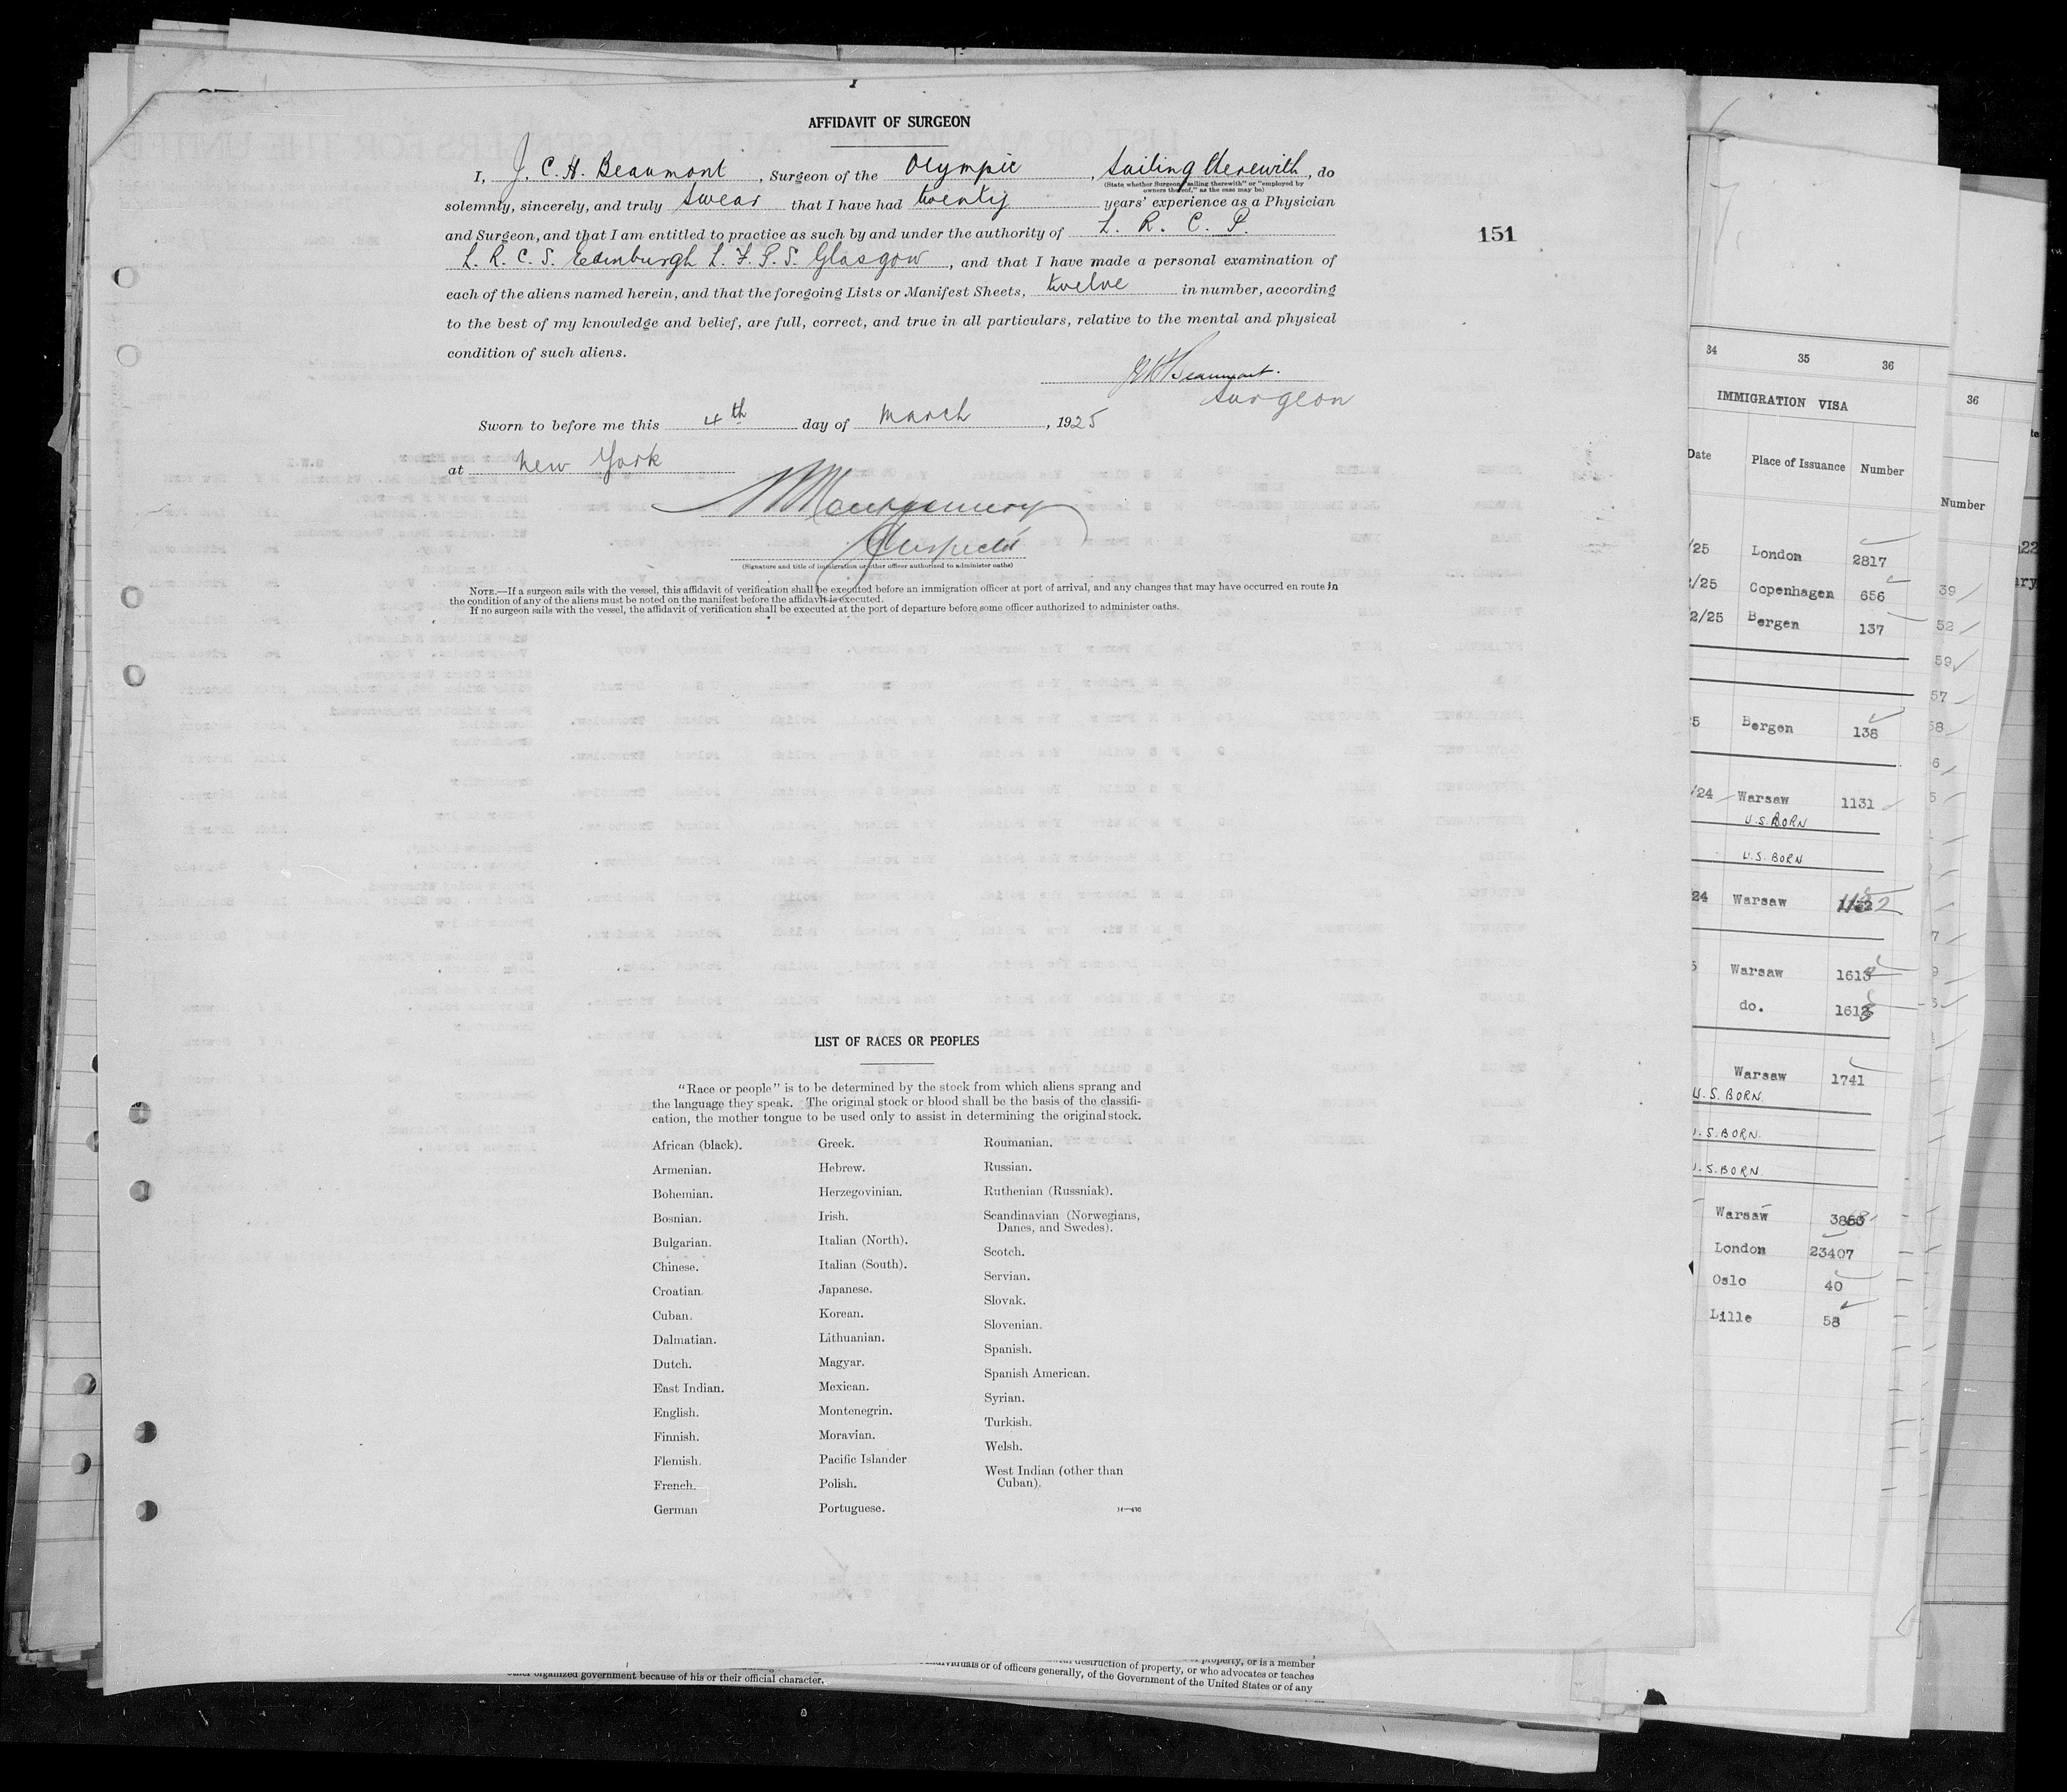 AFFIDAVIT OF SURGEON
I, J. C. H. Beaumont, Surgeon of the Olympic, sailing therewith, do
(State whether Surgeon "sailing therewith" or "employed by
owners thereof," as the case may be)
solemnly, sincerely, and truly swear that I have had twenty years' experience as a Physician
and Surgeon, and that I am entitled to practice as such by and under the authority of L. R. C. P.
151
L. R. C. S. Edinburgh L. F. P. S. Glasgow, and that I have made a personal examination of
each of the aliens named herein, and that the foregoing Lists or Manifest Sheets, twelve in number, according
to the best of my knowledge and belief, are full, correct, and true in all particulars, relative to the mental and physical
condition of such aliens.
Beaumont.
Surgeon
Sworn to before me this 4th day of March, 1925
at New York
Montgomery
(Signature and title of immigration or other officer authorized to administer oaths)
NOTE.—If a surgeon sails with the vessel, this affidavit of verification shall be executed before an immigration officer at port of arrival, and any changes that may have occurred en route in
the condition of any of the aliens must be noted on the manifest before the affidavit is executed.
If no surgeon sails with the vessel, the affidavit of verification shall be executed at the port of departure before some officer authorized to administer oaths.
LIST OF RACES OR PEOPLES
"Race or people" is to be determined by the stock from which aliens sprang and
the language they speak. The original stock or blood shall be the basis of the classifi-
cation, the mother tongue to be used only to assist in determining the original stock.
African (black).
Armenian.
Bohemian.
Bosnian.
Bulgarian.
Chinese.
Croatian.
Cuban.
Dalmatian.
Dutch.
East Indian.
English.
Finnish.
Flemish.
French.
German
Greek.
Hebrew.
Herzegovinian.
Irish.
Italian (North).
Italian (South).
Japanese.
Korean.
Lithuanian.
Magyar.
Mexican.
Montenegrin.
Moravian.
Pacific Islander
Polish.
Portuguese.
Roumanian.
Russian.
Ruthenian (Russniak).
Scandinavian (Norwegians,
Danes, and Swedes).
Scotch.
Servian.
Slovak.
Slovenian.
Spanish.
Spanish American.
Syrian.
Turkish.
Welsh.
West Indian (other than
Cuban).
34 35 36
IMMIGRATION VISA
Date Place of Issuance Number
/25 London 2817
/25 Copenhagen 656
2/25 Bergen 137
5 Bergen 138
/24 Warsaw 1131
U.S. BORN
U.S. BORN
24 Warsaw
5 Warsaw
do.
Warsaw 1741
U.S. BORN.
U.S. BORN.
U.S. BORN.
Warsaw
London 23407
Oslo 40
Lille 58
36
Number
39
52
59
57
58
6
5
7
9
3
other organized government because of his or their official character.
destruction of property, or who advocates or teaches
individuals or of officers generally, of the Government of the United States or of any
property, or is a member